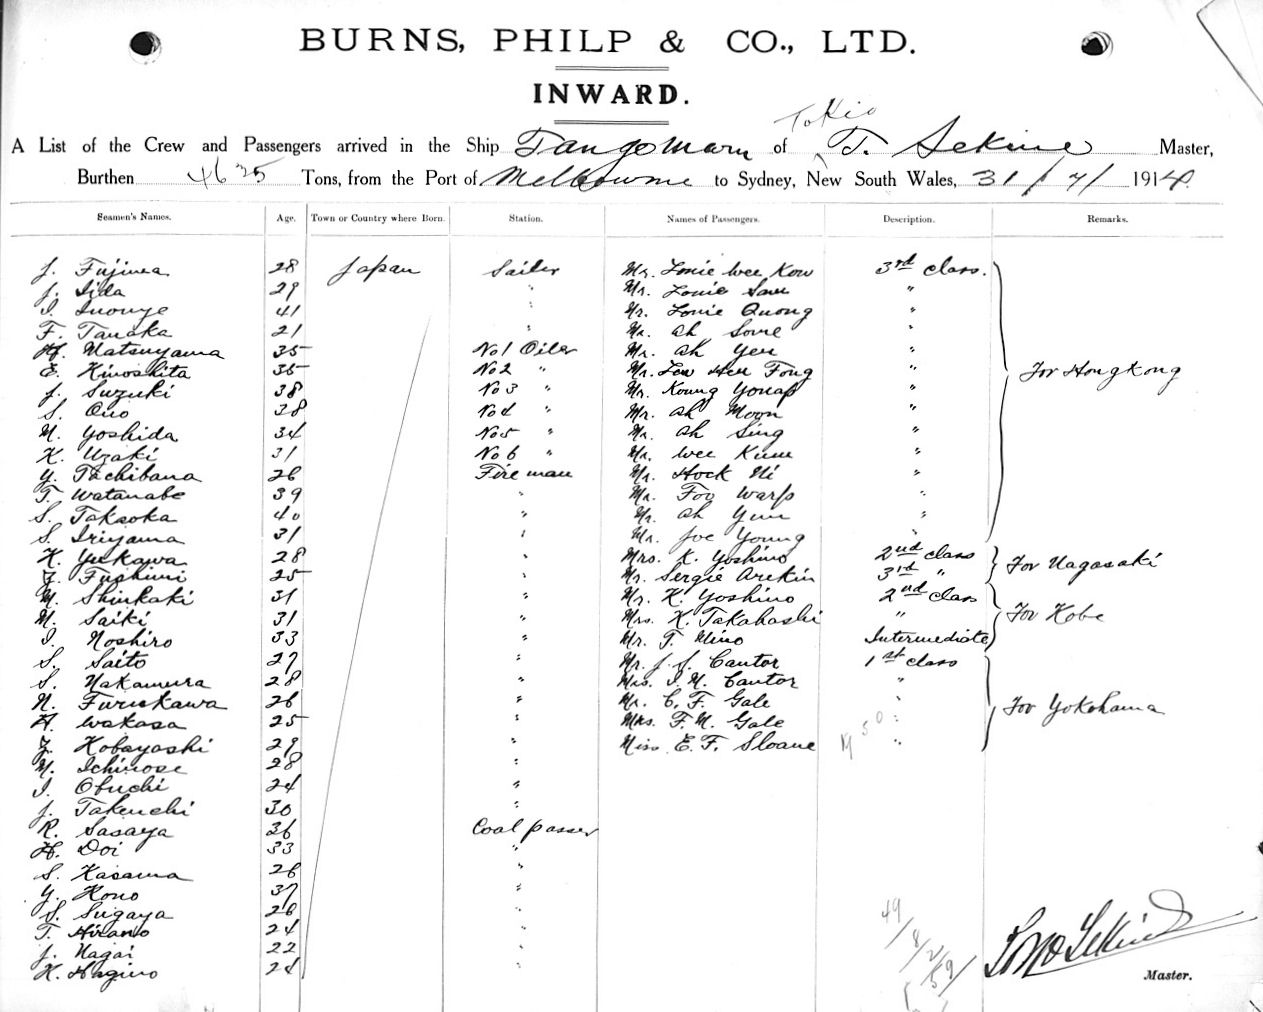 BURNS, PHILP & CO., LTD.
INWARD.
Tokio
A List of the Crew and Passengers arrived in the Ship Tango Maru of T. Sekine Master,
Burthen 4635 Tons, from the Port of Melbourne to Sydney, New South Wales, 31/7/ 1914.
Seamen's Names. Age. Town or Country where Born. Station. Names of Passengers. Description. Remarks.
J. Fujiwa 28 Japan Sailer Mr. Louie Wee Kow 3rd class.
J. Iida 29 " Mr. Louie Sam "
I. Inouye 41 " Mr. Louie Quong "
F. Tanaka 21 " Mr. Ah Some "
H. Matsuyama 35 No 1 Oiler Mr. Ah Yen "
E. Kinoshita 35 No 2 " Mr. Lew Hen Fong " For Hongkong
J. Suzuki 38 No 3 " Mr. Koung Youap "
S. Ono 38 No 4 " Mr. Ah Moon "
M. Yoshida 34 No 5 " Mr. Ah Sing "
K. Uzaki 31 No 6 " Mr. Wee Kum "
Y. Tachibana 26 Fireman Mr. Hock Ni "
T. Watanabe 39 " Mr. Foo Warp "
S. Takaoka 40 " Mr. Ah Yum "
S. Iriyama 31 " Mr. Joe Young "
K. Yukawa 28 " Mrs. K. Yoshino 2nd class For Nagasaki
Z. Fushimi 25 " Mr. Sergie Arekin 3rd "
M. Shinkaki 31 " Mr. K. Yoshino 2nd class
M. Saiki 31 " Mrs. K. Takahashi " For Kobe
I. Noshiro 33 " Mr. T. Mino Intermediate
S. Saito 27 " Mr. J. S. Cantor 1st class
S. Nakamura 28 " Mrs. I. M. Cantor "
N. Furukawa 26 " Mr. C. F. Gale " For Yokohama
H. Wakasa 25 " Mrs. F. M. Gale "
Z. Kobayashi 29 " Miss E. F. Sloane "
M. Ichinose 28 "
I. Obuchi 24 "
J. Takeuchi 30 "
R. Sasaya 36 Coal passer
H. Doi 33 "
S. Kasama 26 "
Y. Kono 37 "
S. Sugaya 26 "
T. Hirano 24 "
J. Nagai 22 "
K. Hagino 24 "
49/8/2/59/
Master.